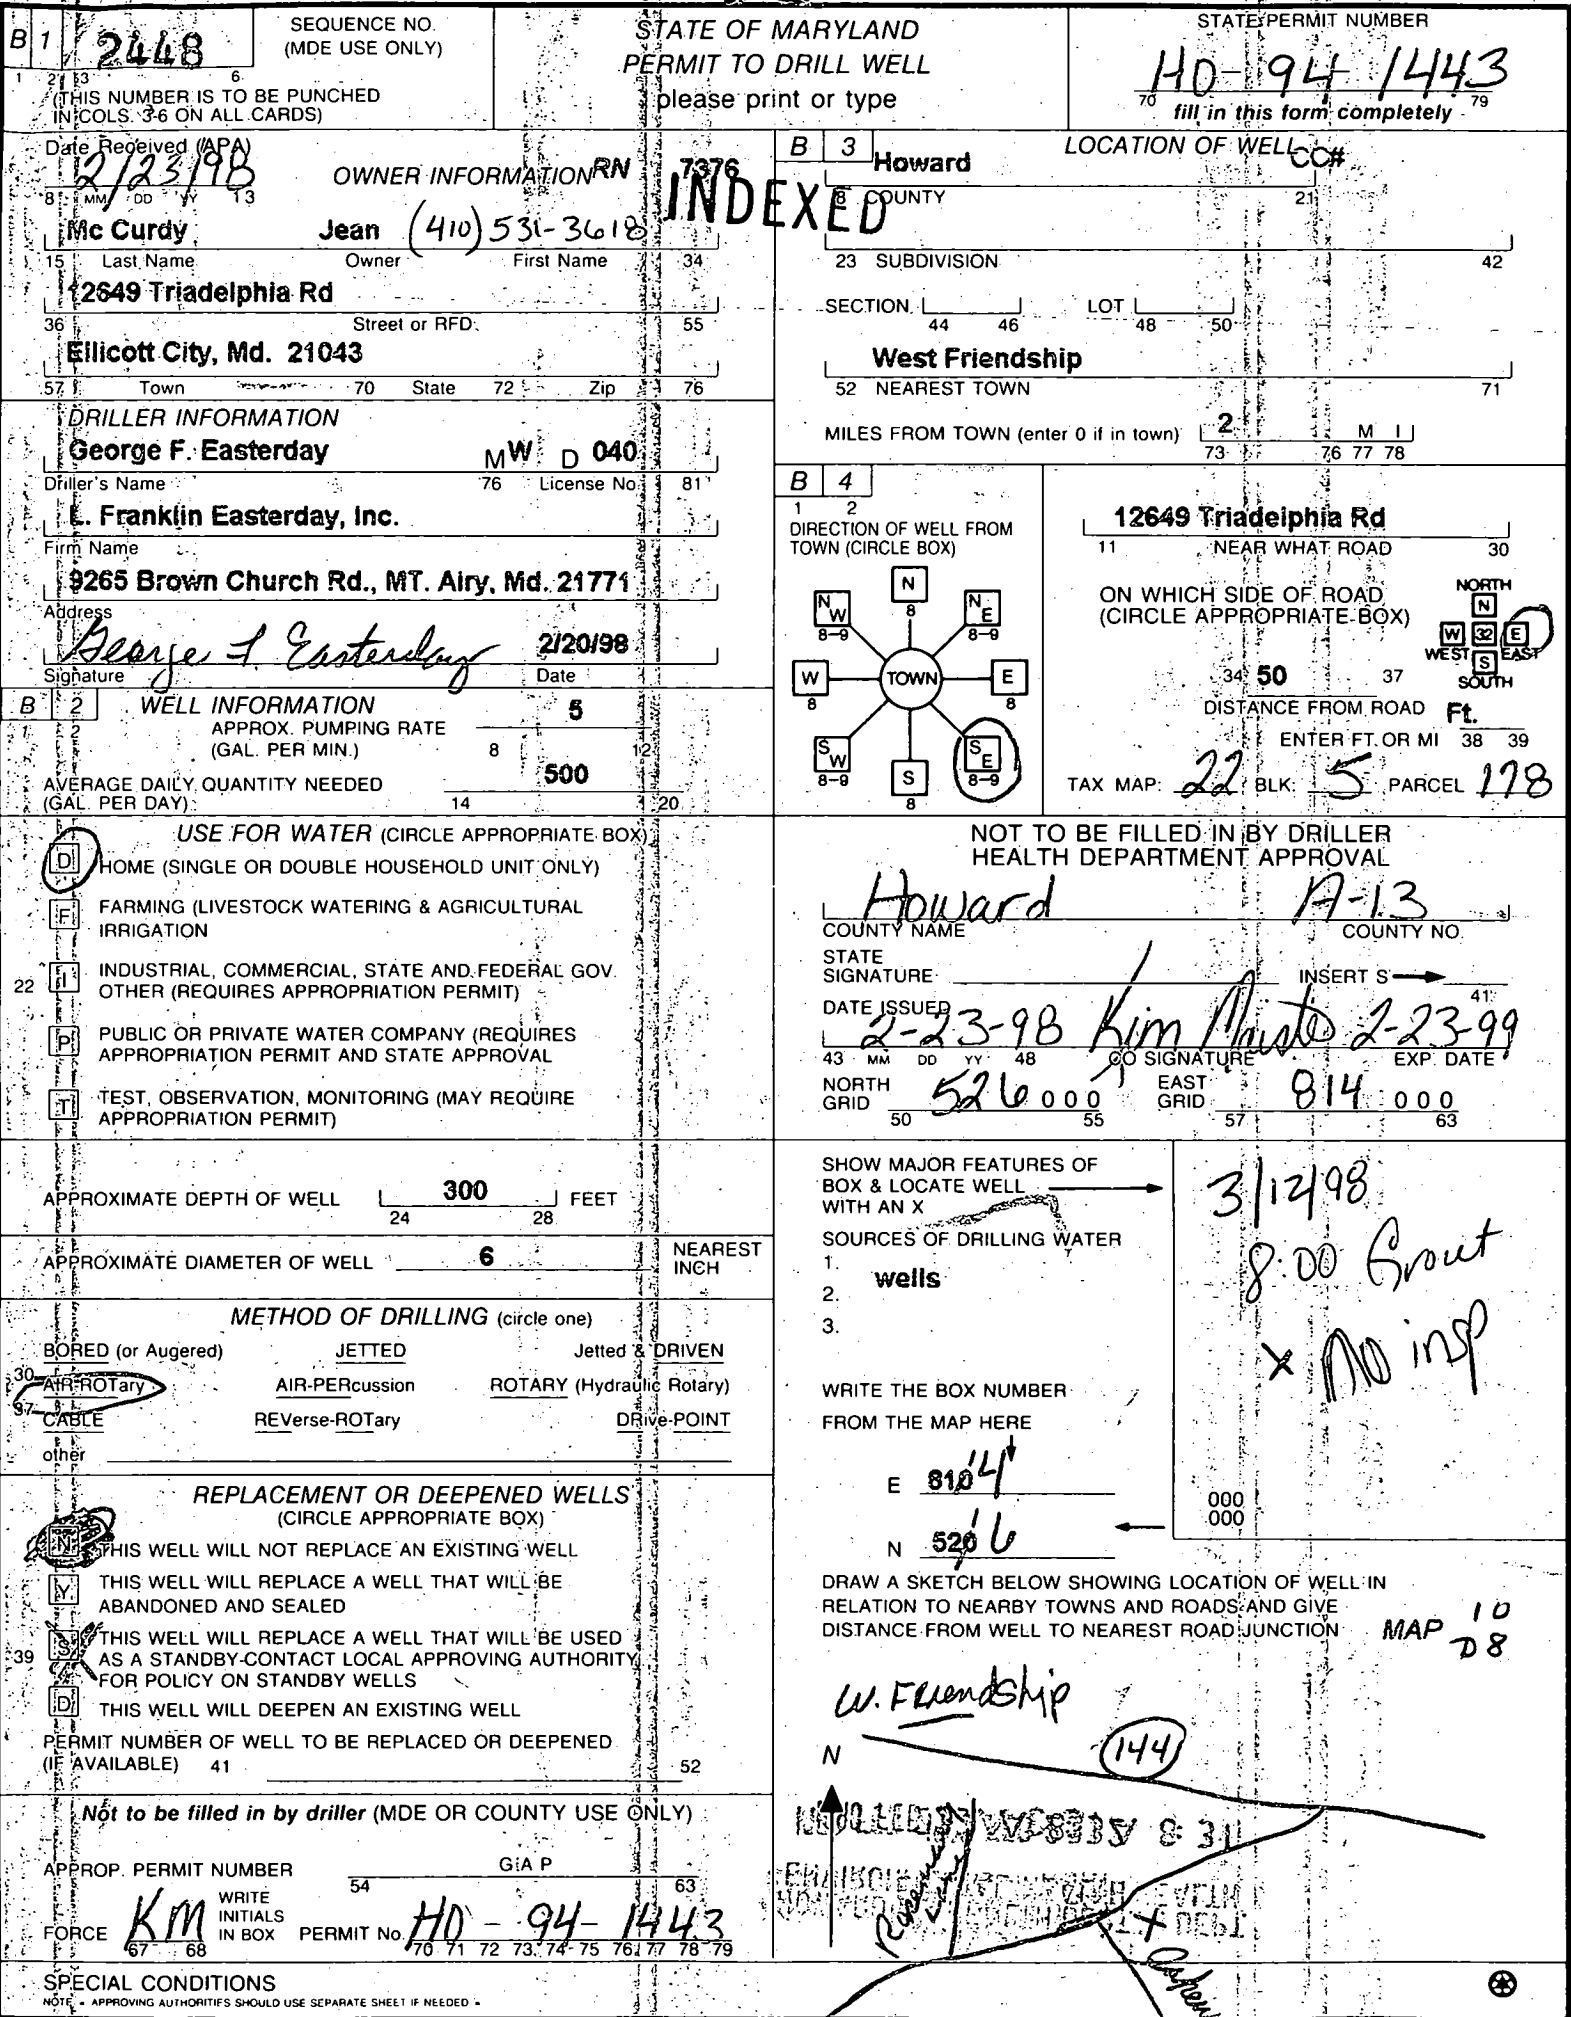 B 1 2448
SEQUENCE NO.
(MDE USE ONLY)
1 2 3 6
(THIS NUMBER IS TO BE PUNCHED
IN COLS. 3-6 ON ALL CARDS)
STATE OF MARYLAND
PERMIT TO DRILL WELL
please print or type
STATE PERMIT NUMBER
HO-94-1443
70 79
fill in this form completely
Date Received (APA)
2/23/98
8 MM DD YY 13
OWNER INFORMATION RN 7376
INDEXED
Mc Curdy Jean (410) 531-3618
15 Last Name Owner First Name 34
12649 Triadelphia Rd
36 Street or RFD 55
Ellicott City, Md. 21043
57 Town 70 State 72 Zip 76
DRILLER INFORMATION
George F. Easterday MW D 040
Driller's Name 76 License No. 81
L. Franklin Easterday, Inc.
Firm Name
9265 Brown Church Rd., MT. Airy, Md. 21771
Address
George F. Easterday 2/20/98
Signature Date
B 2 WELL INFORMATION
1 2
APPROX. PUMPING RATE
(GAL. PER MIN.) 5
8 12
AVERAGE DAILY QUANTITY NEEDED
(GAL. PER DAY) 500
14 20
USE FOR WATER (CIRCLE APPROPRIATE BOX)
D HOME (SINGLE OR DOUBLE HOUSEHOLD UNIT ONLY)
F FARMING (LIVESTOCK WATERING & AGRICULTURAL
IRRIGATION
22 I INDUSTRIAL, COMMERCIAL, STATE AND FEDERAL GOV.
OTHER (REQUIRES APPROPRIATION PERMIT)
P PUBLIC OR PRIVATE WATER COMPANY (REQUIRES
APPROPRIATION PERMIT AND STATE APPROVAL
T TEST, OBSERVATION, MONITORING (MAY REQUIRE
APPROPRIATION PERMIT)
APPROXIMATE DEPTH OF WELL 300 FEET
24 28
APPROXIMATE DIAMETER OF WELL 6 NEAREST
INCH
METHOD OF DRILLING (circle one)
BORED (or Augered) JETTED Jetted & DRIVEN
30 AIR-ROTary AIR-PERcussion ROTARY (Hydraulic Rotary)
37 CABLE REVerse-ROTary DRive-POINT
other
REPLACEMENT OR DEEPENED WELLS
(CIRCLE APPROPRIATE BOX)
N THIS WELL WILL NOT REPLACE AN EXISTING WELL
Y THIS WELL WILL REPLACE A WELL THAT WILL BE
ABANDONED AND SEALED
39 S THIS WELL WILL REPLACE A WELL THAT WILL BE USED
AS A STANDBY-CONTACT LOCAL APPROVING AUTHORITY
FOR POLICY ON STANDBY WELLS
D THIS WELL WILL DEEPEN AN EXISTING WELL
PERMIT NUMBER OF WELL TO BE REPLACED OR DEEPENED
(IF AVAILABLE) 41 52
Not to be filled in by driller (MDE OR COUNTY USE ONLY)
APPROP. PERMIT NUMBER GAP
54 63
FORCE KM WRITE
INITIALS
IN BOX PERMIT No. HO-94-1443
67 68 70 71 72 73 74 75 76 77 78 79
SPECIAL CONDITIONS
NOTE - APPROVING AUTHORITIES SHOULD USE SEPARATE SHEET IF NEEDED -
B 3 LOCATION OF WELL CC#
Howard
8 COUNTY 21
23 SUBDIVISION 42
SECTION LOT
44 46 48 50
West Friendship
52 NEAREST TOWN 71
MILES FROM TOWN (enter 0 if in town) 2 M I
73 76 77 78
B 4
1 2
DIRECTION OF WELL FROM
TOWN (CIRCLE BOX)
N 8
NW 8-9
NE 8-9
W 8
TOWN
E 8
SW 8-9
S 8
SE 8-9
12649 Triadelphia Rd
11 NEAR WHAT ROAD 30
ON WHICH SIDE OF ROAD
(CIRCLE APPROPRIATE BOX)
NORTH
N
W 32 E
WEST EAST
S
SOUTH
34 50 37
DISTANCE FROM ROAD Ft.
ENTER FT. OR MI 38 39
TAX MAP: 22 BLK: 5 PARCEL 178
NOT TO BE FILLED IN BY DRILLER
HEALTH DEPARTMENT APPROVAL
Howard A-13
COUNTY NAME COUNTY NO.
STATE
SIGNATURE INSERT S
41
DATE ISSUED
2-23-98 Kim 2-23-99
43 MM DD YY 48 CO SIGNATURE EXP. DATE
NORTH
GRID 526 000
50 55
EAST
GRID 814 000
57 63
SHOW MAJOR FEATURES OF
BOX & LOCATE WELL
WITH AN X
SOURCES OF DRILLING WATER
1. wells
2.
3.
3/12/98
8:00 Grout
x No insp
WRITE THE BOX NUMBER
FROM THE MAP HERE
E 810 4
N 520 6
000
000
DRAW A SKETCH BELOW SHOWING LOCATION OF WELL IN
RELATION TO NEARBY TOWNS AND ROADS AND GIVE
DISTANCE FROM WELL TO NEAREST ROAD JUNCTION
MAP 10
D8
W. Friendship
N
144
X